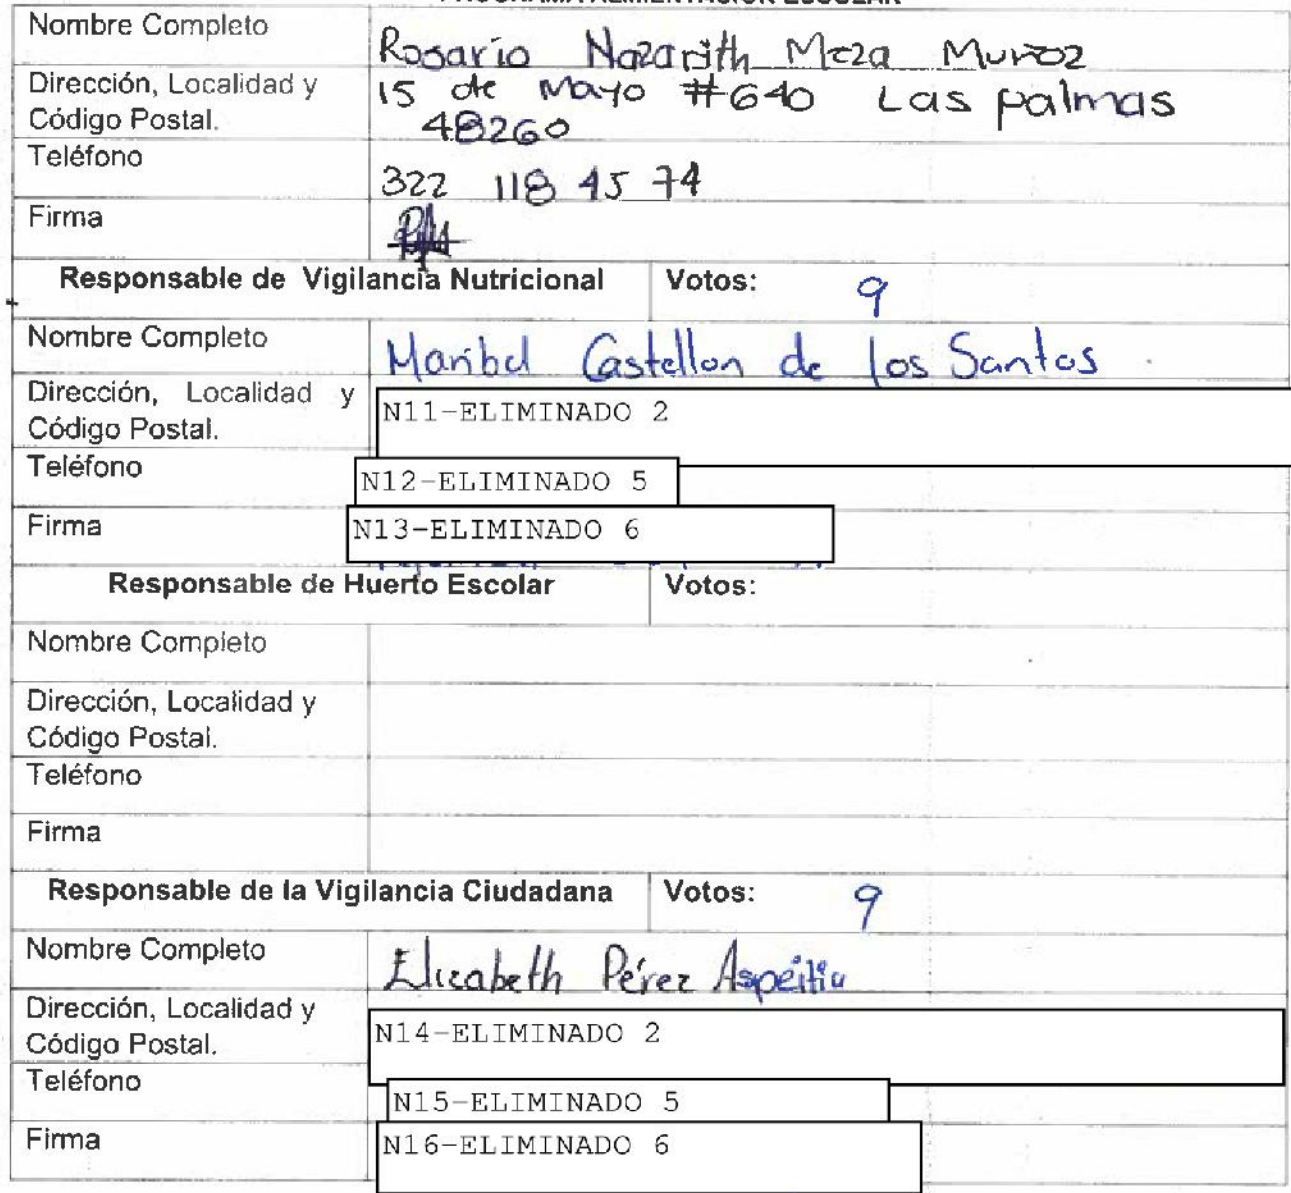 PROGRAMA ALIMENTACIÓN ESCOLAR
Nombre Completo
Rosario Nazarith Meza Munoz
Dirección, Localidad y
Código Postal.
15 de Mayo #640 Las palmas
48260
Teléfono
322 118 45 74
Firma
Responsable de Vigilancia Nutricional Votos: 9
Nombre Completo
Maribel Castellon de los Santos
Dirección, Localidad y
Código Postal.
N11-ELIMINADO 2
Teléfono
N12-ELIMINADO 5
Firma
N13-ELIMINADO 6
Responsable de Huerto Escolar Votos:
Nombre Completo
Dirección, Localidad y
Código Postal.
Teléfono
Firma
Responsable de la Vigilancia Ciudadana Votos: 9
Nombre Completo
Elizabeth Pérez Aspeitia
Dirección, Localidad y
Código Postal.
N14-ELIMINADO 2
Teléfono
N15-ELIMINADO 5
Firma
N16-ELIMINADO 6